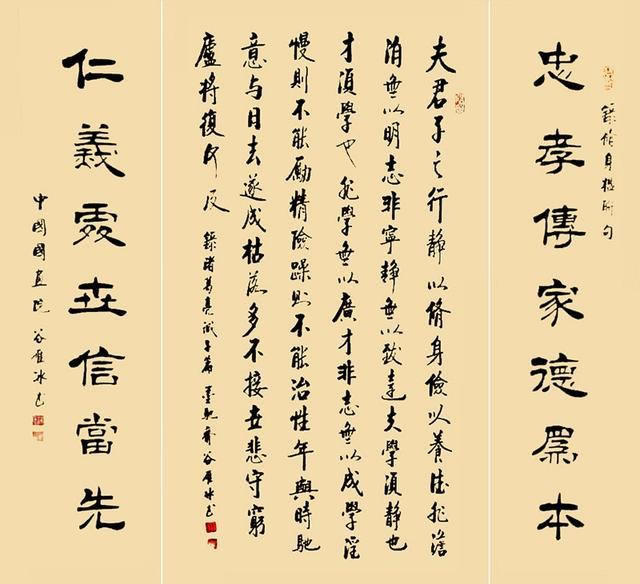 錄脩身楹聯句
忠孝傳家德為本
夫君子之行靜以脩身儉以養德非澹
泊無以明志非寧靜無以致達夫學須靜也
才須學也非學無以廣才非志無以成學淫
慢則不能勵精險躁則不能治性年與時馳
意与日去遂成枯落多不接世悲守窮
廬將復何反
錄諸葛亮誡子篇 墨馳齋谷雁冰书
仁義處世信當先
中國國畫院 谷雁冰书